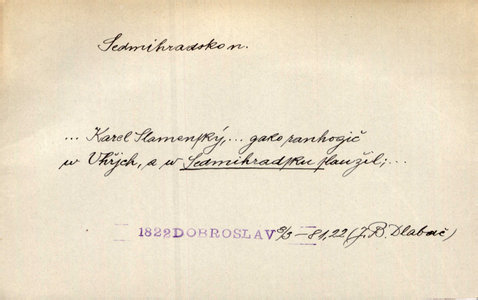 Sedmihradsko n.
... Karel Slamenský,... gako ranhogič
w Uhřjch, a w Sedmihradsku slaužil;...
1822 DOBROSLAV 2/3 – 81,22 (J. B. Dlabač)